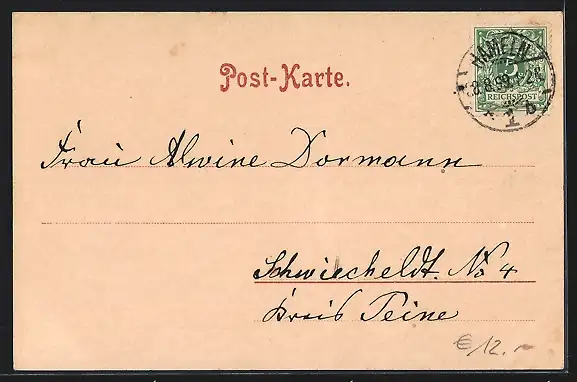 HAMELN
5
REICHSPOST
Post-Karte.
Frau Alwine Dormann
Schwiecheldt. No 4
Kreis Peine
€12.-